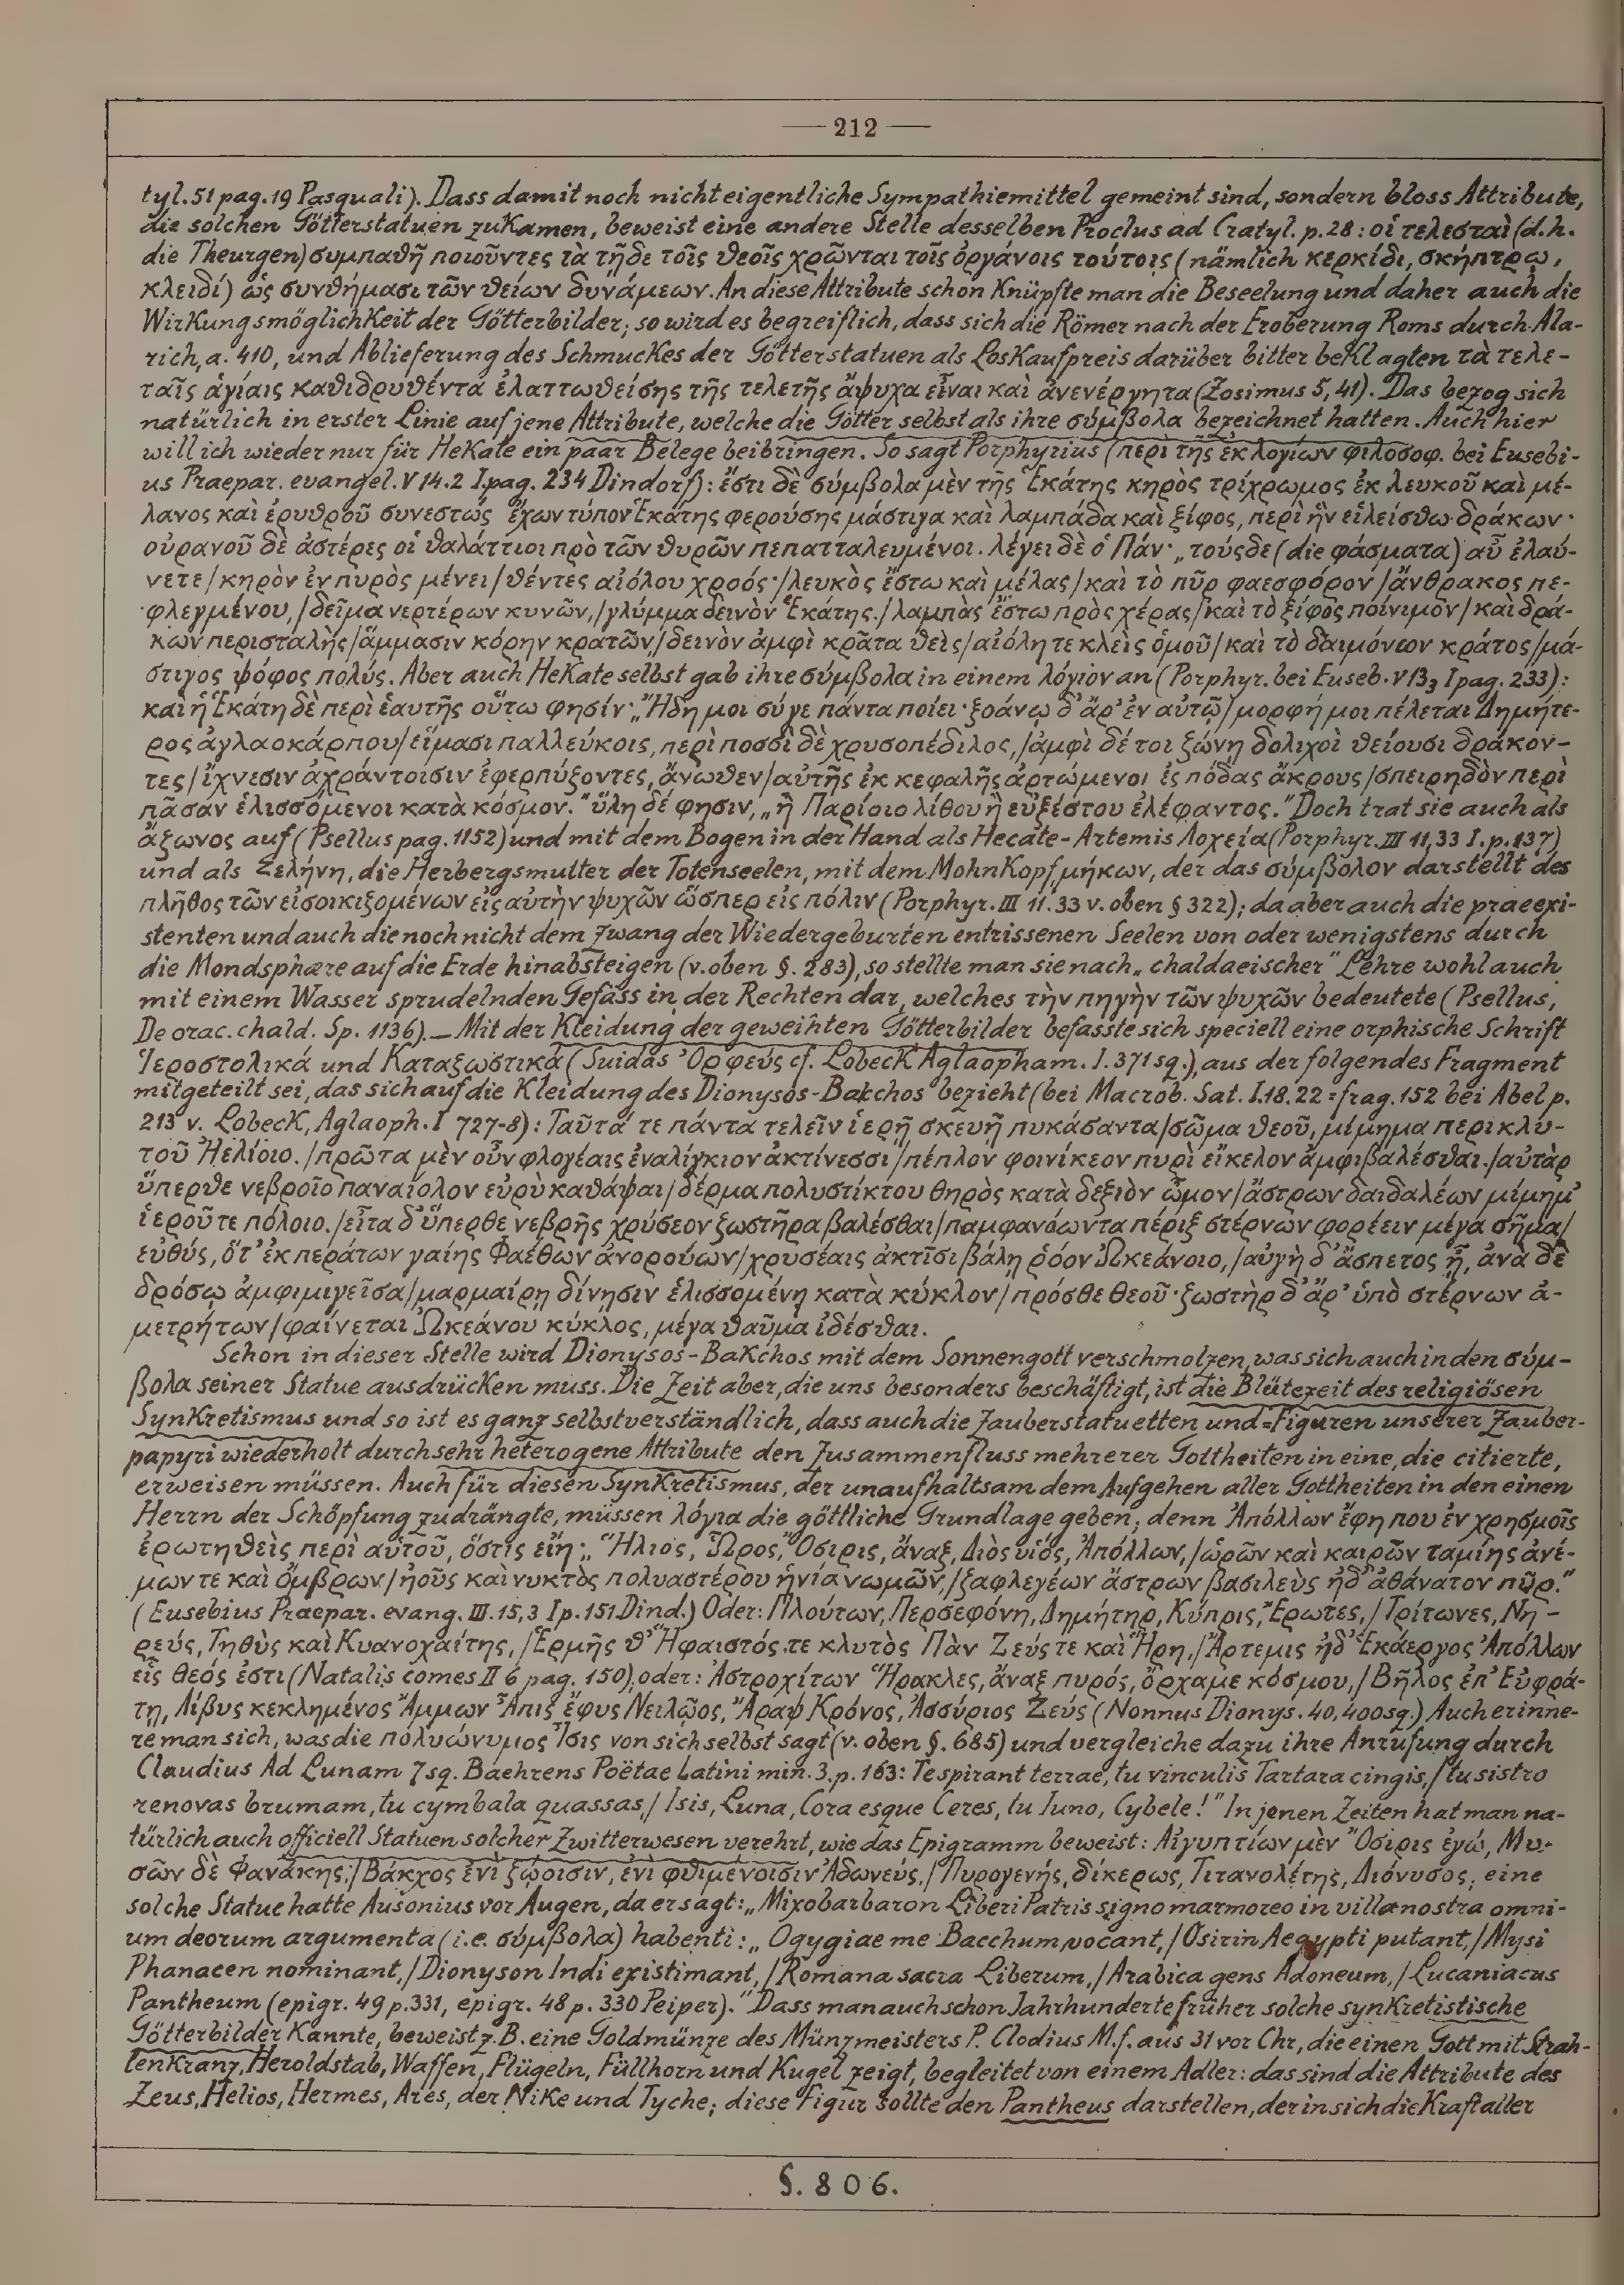 — 212 —
tyl. 51 pag. 19 Pasquali). Dass damit noch nicht eigentliche Sympathiemittel gemeint sind, sondern bloss Attribute,
die solchen Götterstatuen zukamen, beweist eine andere Stelle desselben Proclus ad Cratyl. p. 28: οἱ τελεσταὶ (d.h.
die Theurgen) συμπαθῆ ποιοῦντες τὰ τῇδε τοῖς θεοῖς χρῶνται τοῖς ὀργάνοις τούτοις (nämlich κερκίδι, σκήπτρῳ,
κλειδί) ὡς συνθήμασι τῶν θείων δυνάμεων. An diese Attribute schon knüpfte man die Beseelung und daher auch die
Wirkungsmöglichkeit der Götterbilder; so wird es begreiflich, dass sich die Römer nach der Eroberung Roms durch Ala-
rich, a. 410, und Ablieferung des Schmuckes der Götterstatuen als Loskaufpreis darüber bitter beklagten τὰ τελε-
ταῖς ἁγίαις καθιδρυθέντα ἐλαττωθείσης τῆς τελετῆς ἄψυχα εἶναι καὶ ἀνενέργητα (Zosimus 5, 41). Das bezog sich
natürlich in erster Linie auf jene Attribute, welche die Götter selbst als ihre σύμβολα bezeichnet hatten. Auch hier
will ich wieder nur für Hekate ein paar Belege beibringen. So sagt Porphyrius (περὶ τῆς ἐκ λογίων φιλοσοφ. bei Eusebi-
us Praepar. evangel. V 14.2 I pag. 234 Dindorf): ἔστι δὲ σύμβολα μὲν τῆς Ἑκάτης κηρὸς τρίχρωμος ἐκ λευκοῦ καὶ μέ-
λανος καὶ ἐρυθροῦ συνεστώς ἔχων τύπον Ἑκάτης φερούσης μάστιγα καὶ λαμπάδα καὶ ξίφος, περὶ ἣν εἱλείσθω δράκων·
οὐρανοῦ δὲ ἀστέρες οἱ θαλάττιοι πρὸ τῶν θυρῶν πεπατταλευμένοι. λέγει δὲ ὁ Πάν· „τούσδε (die φάσματα) αὖ ἐλαύ-
νετε / κηρὸν ἐν πυρὸς μένει / θέντες αἰόλου χροός· / λευκὸς ἔστω καὶ μέλας / καὶ τὸ πῦρ φαεσφόρον / ἄνθρακος πε-
φλεγμένου, / δεῖμα νερτέρων κυνῶν, / γλύμμα δεινὸν Ἑκάτης. / λαμπὰς ἔστω πρὸς χέρας / καὶ τὸ ξίφος ποίνιμον / καὶ δρά-
κων περισταλὴς / ἅμμασιν κόρην κρατῶν, / δεινὸν ἀμφὶ κρᾶτα θεὶς / αἰόλη τε κλεὶς ὁμοῦ / καὶ τὸ δαιμόνων κράτος / μά-
στιγος ψόφος πολύς. Aber auch Hekate selbst gab ihre σύμβολα in einem λόγιον an (Porphyr. bei Euseb. V 13₃ I pag. 233):
καὶ ἡ Ἑκάτη δὲ περὶ ἑαυτῆς οὕτω φησίν· „Ἤδη μοι σύγε πάντα ποίει· ξοάνῳ δ' ἄρ' ἐν αὐτῷ / μορφή μοι πέλεται Δημήτε-
ρος ἀγλαοκάρπου / εἵμασι παλλεύκοις, περὶ ποσσὶ δὲ χρυσοπέδιλος, / ἀμφὶ δέ τοι ζώνῃ δολιχοὶ θείουσι δράκον-
τες / ἴχνεσιν ἀχράντοισιν ἐφερπύζοντες, ἄνωθεν / αὐτῆς ἐκ κεφαλῆς ἀρτώμενοι ἐς πόδας ἄκρους / σπειρηδὸν περὶ
πᾶσαν ἑλισσόμενοι κατὰ κόσμον." ὕλη δέ φησιν, „ἢ Παρίοιο λίθου ἢ εὐξέστου ἐλέφαντος." Doch trat sie auch als
ἄζωνος auf (Psellus pag. 1152) und mit dem Bogen in der Hand als Hecate-Artemis Λοχεία (Porphyr. III 11,33 I. p. 137)
und als Σελήνη, die Herbergsmutter der Totenseelen, mit dem Mohnkopf, μήκων, der das σύμβολον darstellt des
πλῆθος τῶν εἰσοικιζομένων εἰς αὐτὴν ψυχῶν ὥσπερ εἰς πόλιν (Porphyr. III 11.33 v. oben § 322); da aber auch die praeexi-
stenten und auch die noch nicht dem Zwang der Wiedergeburten entrissenen Seelen von oder wenigstens durch
die Mondsphaere auf die Erde hinabsteigen (v. oben §. 283), so stellte man sie nach „chaldaeischer" Lehre wohl auch
mit einem Wasser sprudelnden Gefäss in der Rechten dar, welches τὴν πηγὴν τῶν ψυχῶν bedeutete (Psellus,
De orac. chald. Sp. 1136). — Mit der Kleidung der geweihten Götterbilder befasste sich speciell eine orphische Schrift
Ἱεροστολικά und Καταζωστικά (Suidas Ὀρφεύς cf. Lobeck Aglaopham. I. 371 sq.), aus der folgendes Fragment
mitgeteilt sei, das sich auf die Kleidung des Dionysos-Bakchos bezieht (bei Macrob. Sat. I.18.22 = frag. 152 bei Abel p.
213 v. Lobeck, Aglaoph. I 727-8): Ταῦτά τε πάντα τελεῖν ἱερῇ σκευῇ πυκάσαντα / σῶμα θεοῦ, μίμημα περικλυ-
τοῦ Ἠελίοιο. / πρῶτα μὲν οὖν φλογέαις ἐναλίγκιον ἀκτίνεσσι / πέπλον φοινίκεον πυρὶ εἴκελον ἀμφιβαλέσθαι. / αὐτὰρ
ὕπερθε νεβροῖο παναίολον εὐρὺ καθάψαι / δέρμα πολυστίκτου θηρὸς κατὰ δεξιὸν ὦμον / ἄστρων δαιδαλέων μίμημ'
ἱεροῦ τε πόλοιο. / εἶτα δ' ὕπερθε νεβρῆς χρύσεον ζωστῆρα βαλέσθαι / παμφανόωντα πέριξ στέρνων φορέειν μέγα σῆμα /
εὐθύς, ὅτ' ἐκ περάτων γαίης Φαέθων ἀνορούων / χρυσέαις ἀκτῖσι βάλῃ ῥόον Ὠκεάνοιο, / αὐγὴ δ' ἄσπετος ᾖ, ἀνὰ δὲ
δρόσῳ ἀμφιμιγεῖσα / μαρμαίρῃ δίνῃσιν ἑλισσομένη κατὰ κύκλον / πρόσθε θεοῦ· ζωστὴρ δ' ἄρ' ὑπὸ στέρνων ἀ-
μετρήτων / φαίνεται Ὠκεάνου κύκλος, μέγα θαῦμα ἰδέσθαι.
Schon in dieser Stelle wird Dionysos-Bakchos mit dem Sonnengott verschmolzen, was sich auch in den σύμ-
βολα seiner Statue ausdrücken muss. Die Zeit aber, die uns besonders beschäftigt, ist die Blütezeit des religiösen
Synkretismus und so ist es ganz selbstverständlich, dass auch die Zauberstatuetten und =Figuren unserer Zauber-
papyri wiederholt durch sehr heterogene Attribute den Zusammenfluss mehrerer Gottheiten in eine, die citierte,
erweisen müssen. Auch für diesen Synkretismus, der unaufhaltsam dem Aufgehen aller Gottheiten in den einen
Herrn der Schöpfung zudrängte, müssen λόγια die göttliche Grundlage geben; denn Ἀπόλλων ἔφη που ἐν χρησμοῖς
ἐρωτηθεὶς περὶ αὑτοῦ, ὅστις εἴη· „Ἥλιος, Ὧρος, Ὄσιρις, ἄναξ, Διὸς υἱός, Ἀπόλλων, / ὡρῶν καὶ καιρῶν ταμίης ἀνέ-
μων τε καὶ ὄμβρων / ἠοῦς καὶ νυκτὸς πολυαστέρου ἡνία νωμῶν, / ζαφλεγέων ἄστρων βασιλεὺς ἠδ' ἀθάνατον πῦρ."
(Eusebius Praepar. evang. III. 15,3 I p. 151 Dind.) Oder: Πλούτων, Περσεφόνη, Δημήτηρ, Κύπρις, Ἔρωτες, / Τρίτωνες, Νη-
ρεύς, Τηθὺς καὶ Κυανοχαίτης, / Ἑρμῆς θ' Ἥφαιστός τε κλυτὸς Πὰν Ζεύς τε καὶ Ἥρη, / Ἄρτεμις ἠδ' Ἑκάεργος Ἀπόλλων
εἷς θεός ἐστι (Natalis comes II 6 pag. 150), oder: Ἀστροχίτων Ἥρακλες, ἄναξ πυρός, ὄρχαμε κόσμου, / Βῆλος ἐπ' Εὐφρά-
τῃ, Λίβυς κεκλημένος Ἄμμων Ἆπις ἔφυς Νειλῷος, Ἄραψ Κρόνος, Ἀσσύριος Ζεύς (Nonnus Dionys. 40, 400 sq.) Auch erinne-
re man sich, was die πολυώνυμος Ἶσις von sich selbst sagt (v. oben §. 685) und vergleiche dazu ihre Anrufung durch
Claudius Ad Lunam 7 sq. Baehrens Poëtae Latini min. 3. p. 163: Te spirant terrae, tu vinculis Tartara cingis, / tu sistro
renovas brumam, tu cymbala quassas, / Isis, Luna, Cora esque Ceres, tu Iuno, Cybele!" In jenen Zeiten hat man na-
türlich auch officiell Statuen solcher Zwitterwesen verehrt, wie das Epigramm beweist: Αἰγυπτίων μὲν Ὄσιρις ἐγώ, Μυ-
σῶν δὲ Φανάκης. / Βάκχος ἐνὶ ζῴοισιν, ἐνὶ φθιμένοισιν Ἀδωνεύς, / Πυρογενής, δίκερως, Τιτανολέτης, Διόνυσος; eine
solche Statue hatte Ausonius vor Augen, da er sagt: „Mixobarbaron Liberi Patris signo marmoreo in villa nostra omni-
um deorum argumenta (i.e. σύμβολα) habenti: „Ogygiae me Bacchum vocant, / Osirin Aegypti putant, / Mysi
Phanacen nominant, / Dionyson Indi existimant, / Romana sacra Liberum, / Arabica gens Adoneum, / Lucaniacus
Pantheum (epigr. 49 p. 331, epigr. 48 p. 330 Peiper)." Dass man auch schon Jahrhunderte früher solche synkretistische
Götterbilder kannte, beweist z.B. eine Goldmünze des Münzmeisters P. Clodius M.f. aus 31 vor Chr., die einen Gott mit Strah-
lenkranz, Heroldstab, Waffen, Flügeln, Füllhorn und Kugel zeigt, begleitet von einem Adler: das sind die Attribute des
Zeus, Helios, Hermes, Ares, der Nike und Tyche; diese Figur sollte den Pantheus darstellen, der in sich die Kraft aller
§. 806.